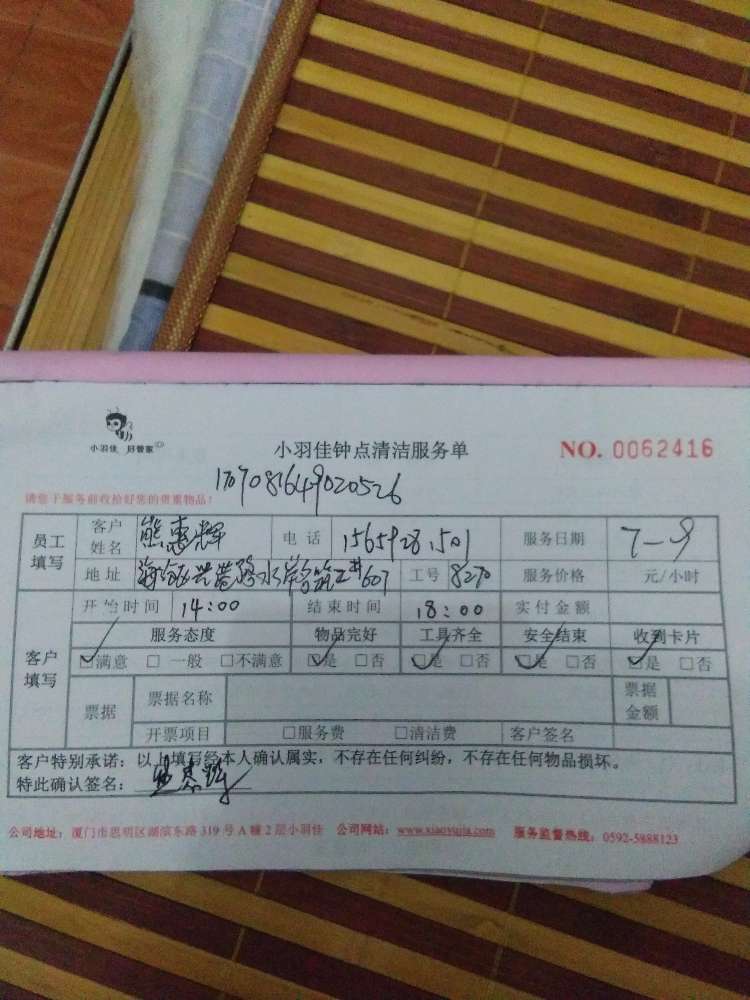 小羽佳 好管家
小羽佳钟点清洁服务单
NO. 0062416
请您于服务前收拾好您的贵重物品!
员工填写
客户姓名 熊惠辉 电话 服务日期 7-9
地址 工号 8270 服务价格 元/小时
客户填写
开始时间 14:00 结束时间 18:00 实付金额
服务态度 物品完好 工具齐全 安全结束 收到卡片
☑满意 □一般 □不满意 ☑是 □否 ☑是 □否 ☑是 □否 ☑是 □否
票据 票据名称 票据金额
开票项目 □服务费 □清洁费 客户签名
客户特别承诺:以上填写经本人确认属实,不存在任何纠纷,不存在任何物品损坏。
特此确认签名: 熊惠辉
公司地址:厦门市思明区湖滨东路319号A幢2层小羽佳 公司网站:www.xiaoyujia.com 服务监督热线:0592-5888123